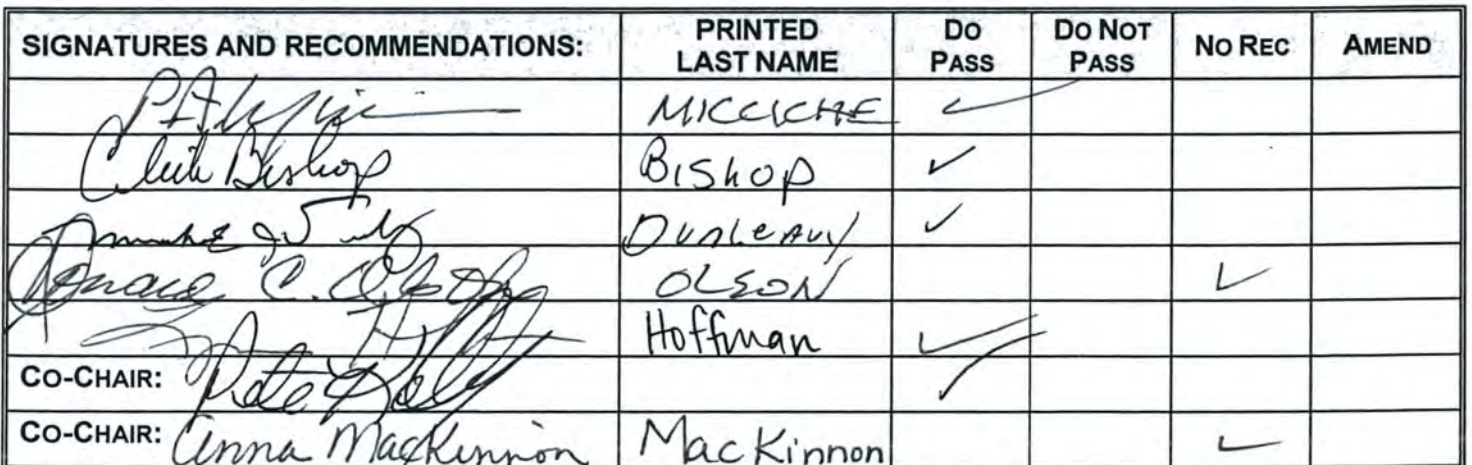 SIGNATURES AND RECOMMENDATIONS: PRINTED LAST NAME DO PASS DO NOT PASS NO REC AMEND
MICCICHE ✓
Click Bishop BISHOP ✓
DUNLEAVY ✓
Donald C. Olson OLSON ✓
Hoffman ✓
CO-CHAIR: Pete Kelly ✓
CO-CHAIR: Anna MacKinnon MacKinnon ✓